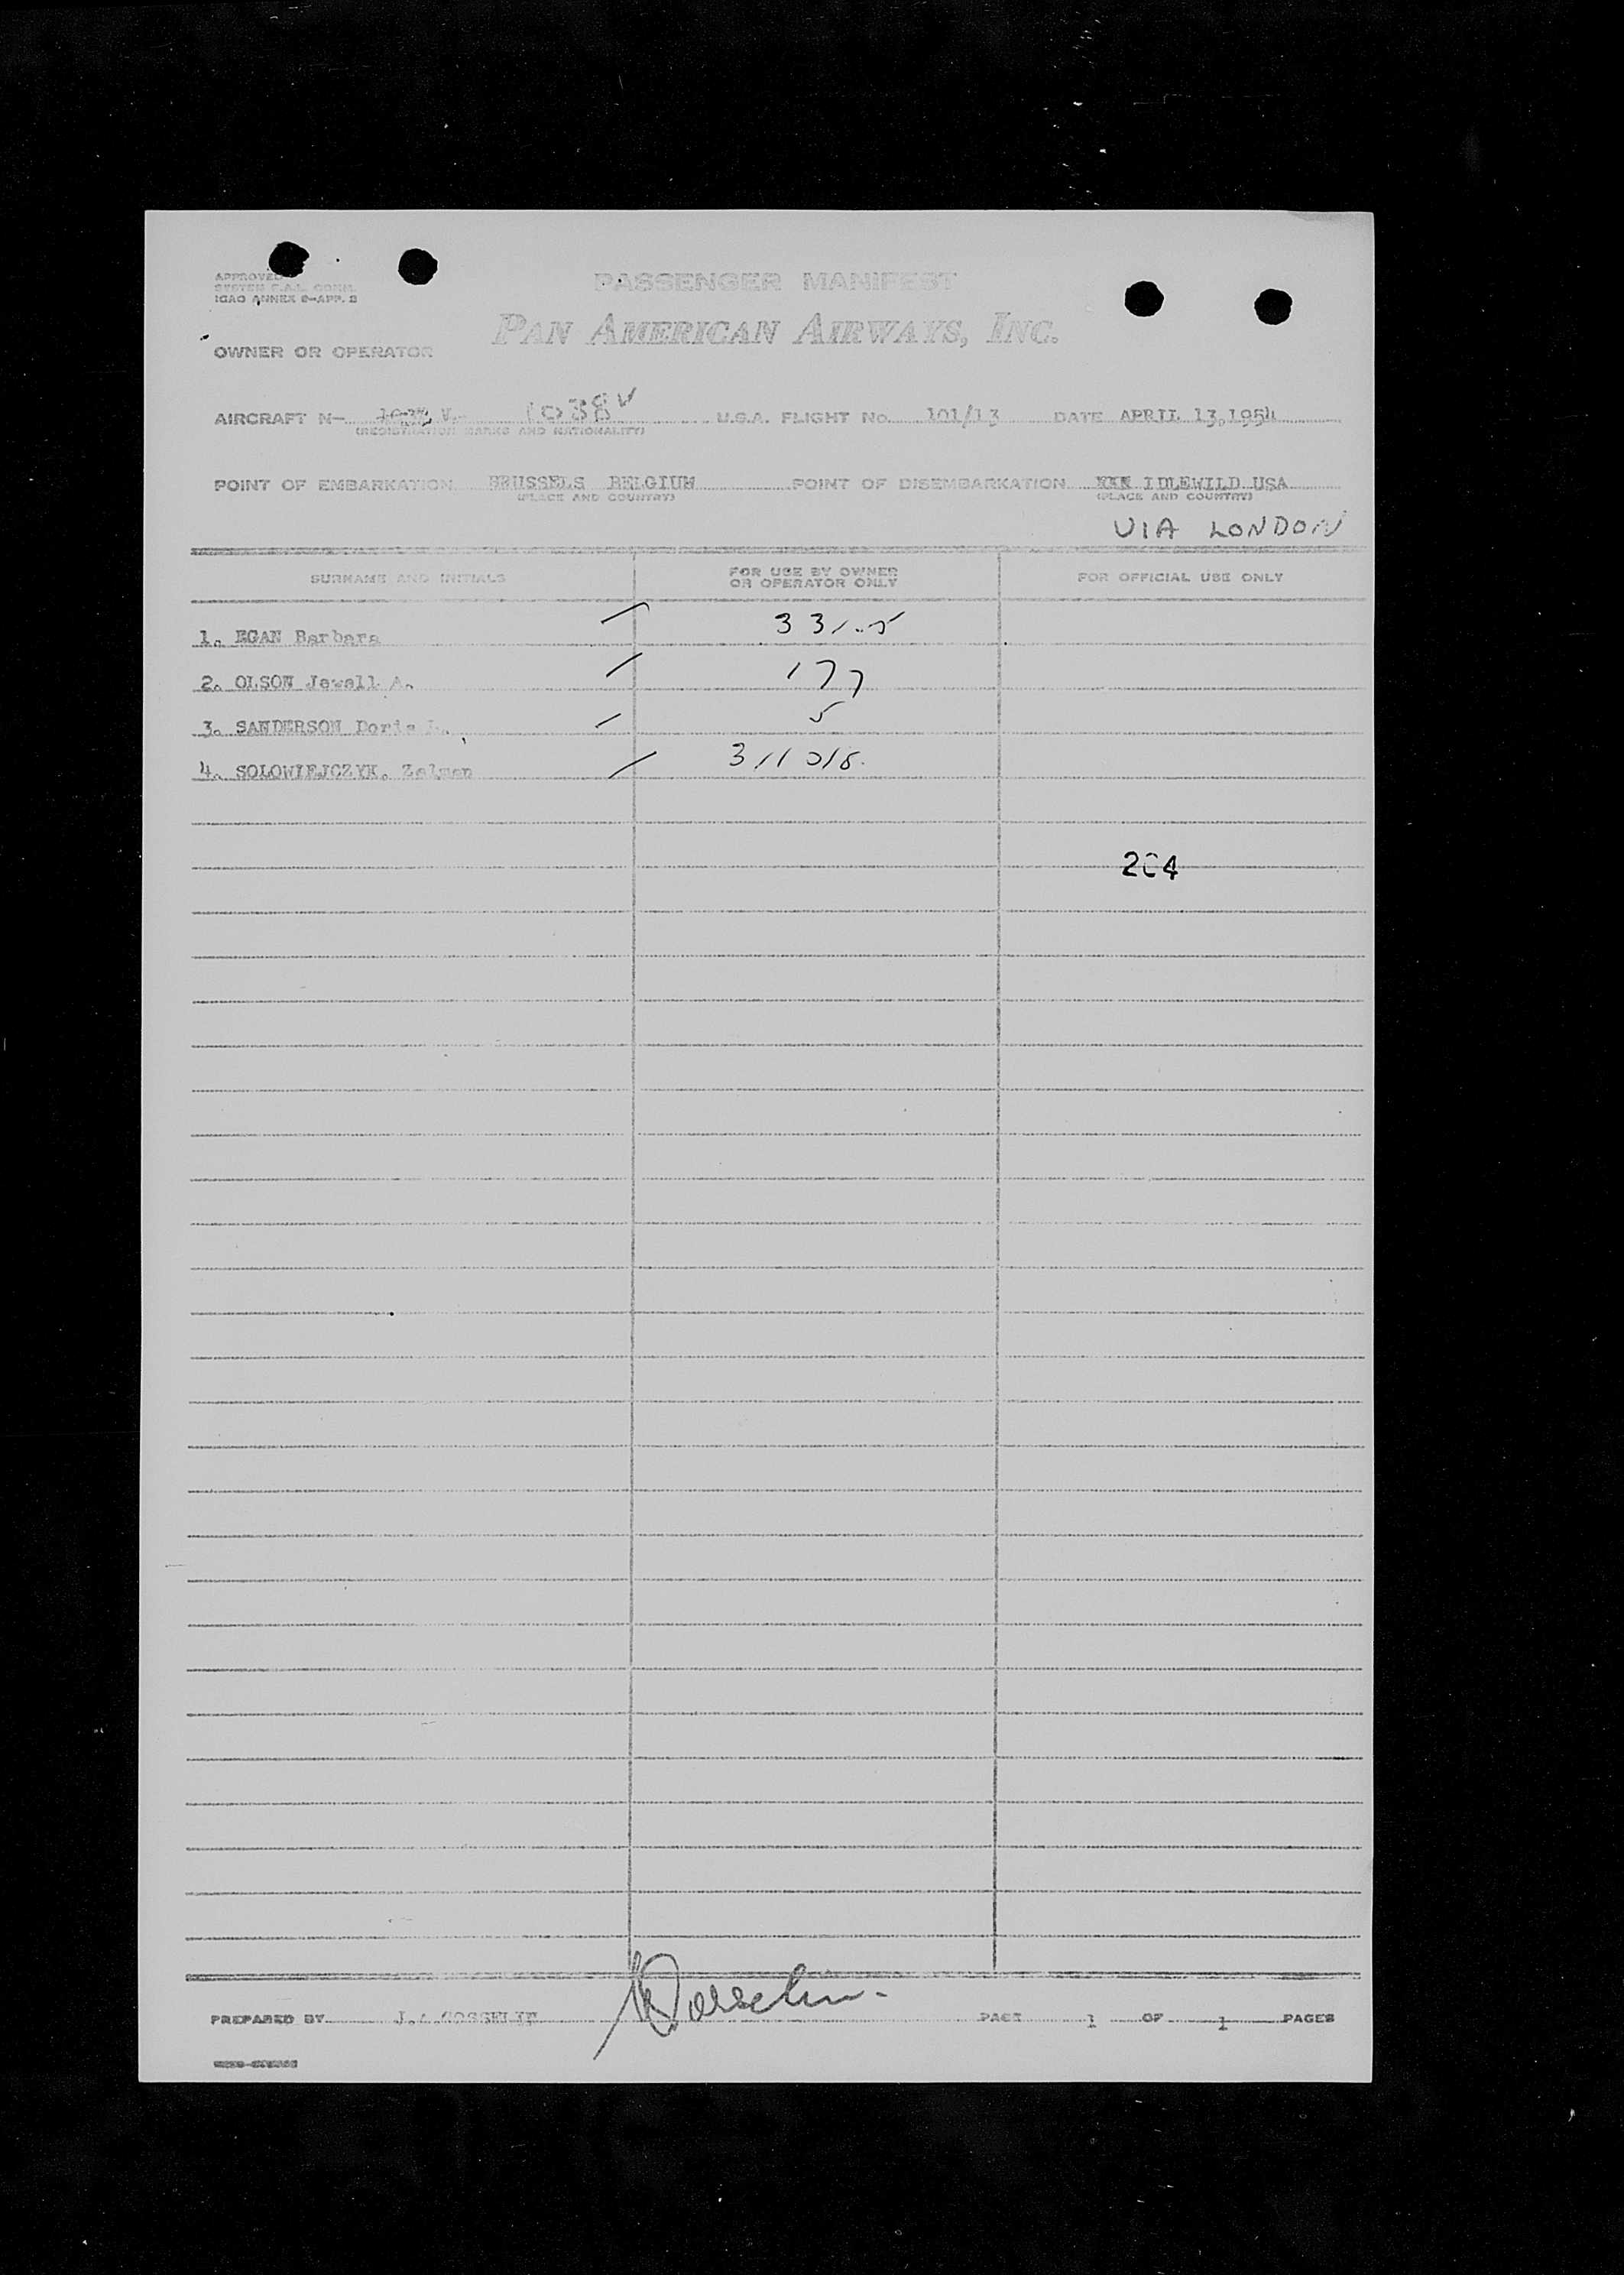 APPROVED
SYSTEM F.A.L. COMM.
ICAO ANNEX 9-APP. 2
PASSENGER MANIFEST
PAN AMERICAN AIRWAYS, INC.
OWNER OR OPERATOR
AIRCRAFT N- 1038V U.S.A. FLIGHT No. 101/13 DATE APRIL 13,1954
(REGISTRATION MARKS AND NATIONALITY)
POINT OF EMBARKATION BRUSSELS BELGIUM POINT OF DISEMBARKATION XXX IDLEWILD USA
(PLACE AND COUNTRY) (PLACE AND COUNTRY)
VIA LONDON
SURNAME AND INITIALS FOR USE BY OWNER OR OPERATOR ONLY FOR OFFICIAL USE ONLY
1. EGAN Barbara
2. OLSON Jewell A. 177
3. SANDERSON Doris 5
4. SOLOWIEJCZYK. Zelman
204
PREPARED BY J.A.GOSSELIN PAGE 1 OF 1 PAGES